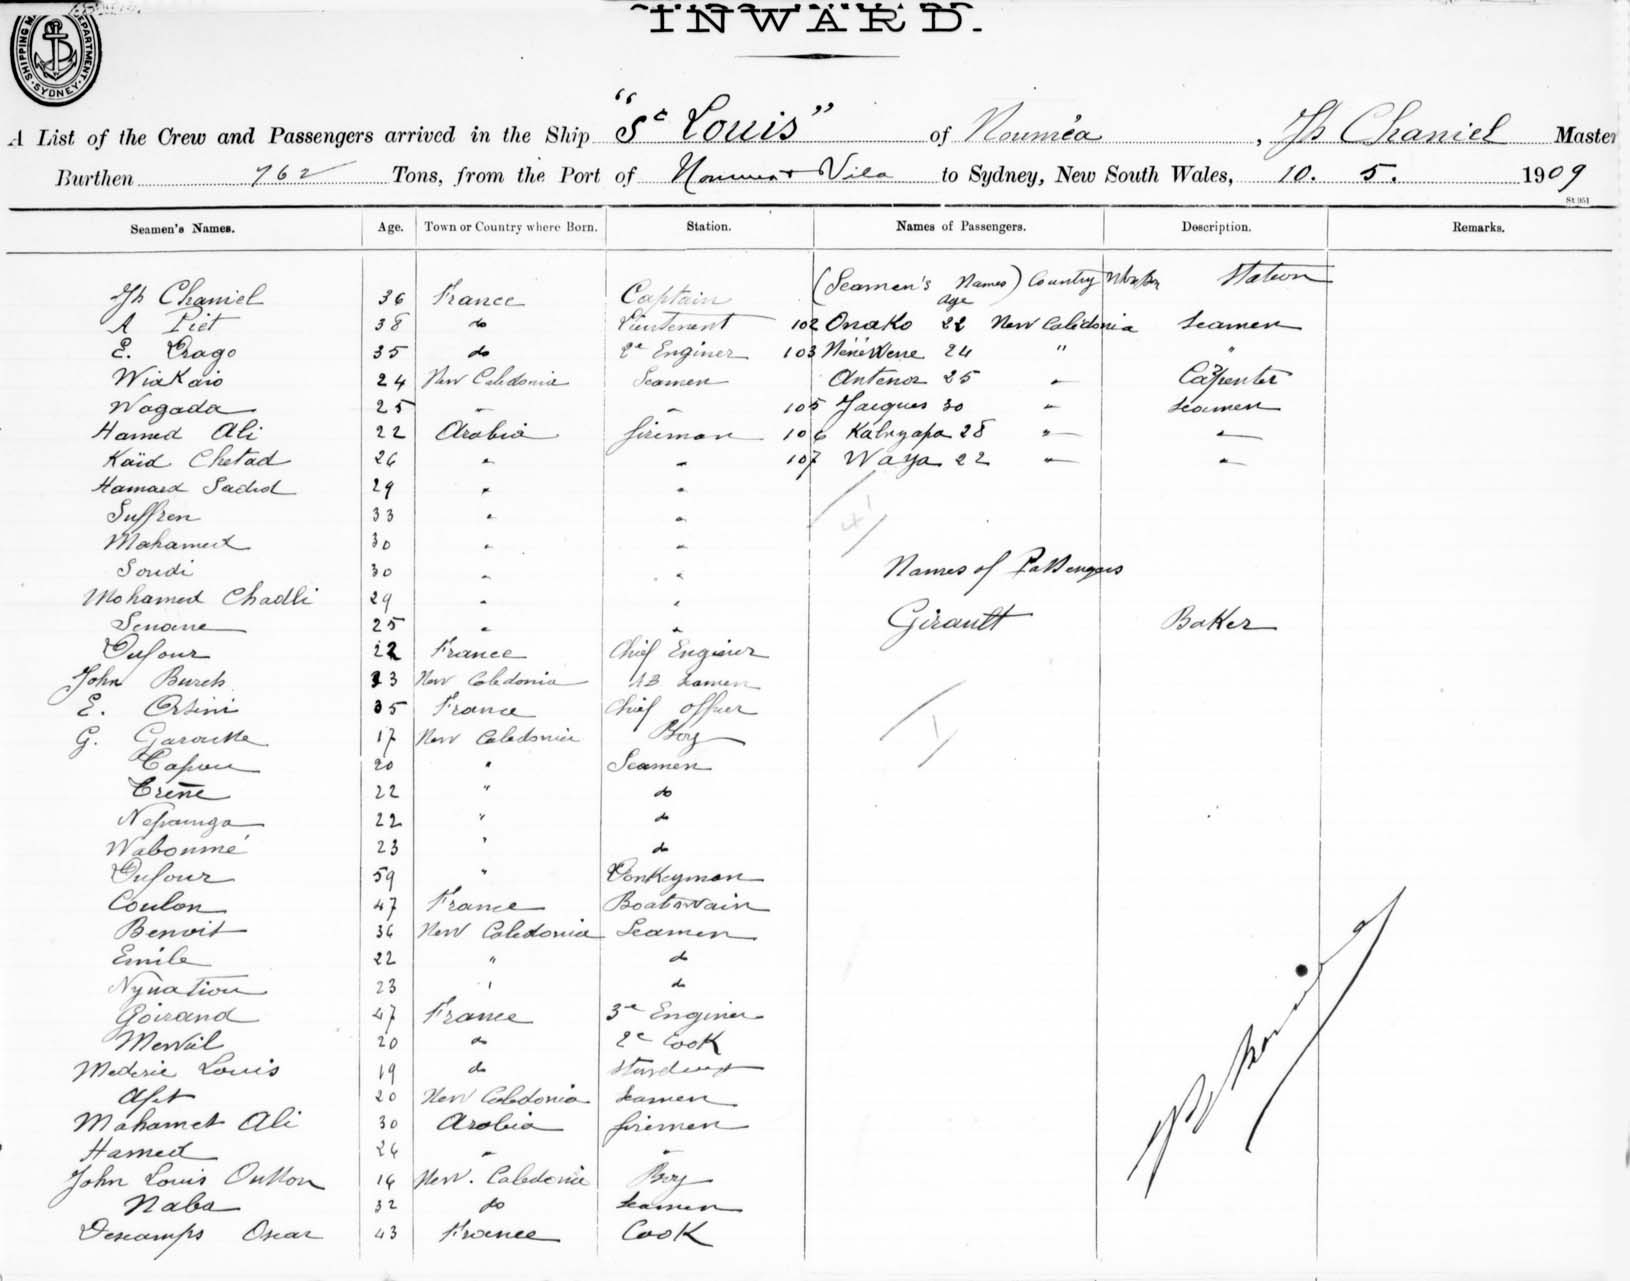 INWARD.
SHIPPING M DEPARTMENT. SYDNEY
A List of the Crew and Passengers arrived in the Ship "St Louis" of Nouméa, Jh Chaniel Master
Burthen 762 Tons, from the Port of Noumea + Vila to Sydney, New South Wales, 10. 5. 1909
St 951
Seamen's Names. Age. Town or Country where Born. Station. Names of Passengers. Description. Remarks.
(Seamen's Names) Country Station
Age
Jh Chaniel 36 France Captain
A Piet 38 do Lieutenent 102 Onoko 22 New Caledonia Seamen
E. Drago 35 do 2e Enginer 103 24 " "
WiaKaio 24 New Caledonia Seamen Antenor 25 " Carpenter
Wagada 25 " " 105 Jacques 30 " Seamen
Hamed Ali 22 Arabia fireman 106 Kabuyapa 28 " "
Kaïd Chetad 26 " " 107 Waya 22 " "
Hamaed Sadid 29 " "
Suffren 33 " "
Mahamed 30 " "
Soudi 30 " "
Names of Passengers
Mohamed Chadli 29 " "
Senane 25 " " Girault Baker
Dufour 22 France Chief Enginer
John Burch 23 New Caledonia AB Seamen
E. Orsini 35 France Chief Officer
G. Garoune 17 New Caledonia Boy
Capou 20 " Seamen
Crène 22 " do
Nepamga 22 " do
Waboumé 23 " do
Dufour 59 " Donkeyman
Coulon 47 France Boatswain
Benoit 36 New Caledonia Seamen
Emile 22 " do
Nynatiou 23 " do
Goirand 47 France 3e Enginer
Mervil 20 do 2e Cook
Mederic Louis 19 do
Apit 20 New Caledonia Seamen
Mahamet Ali 30 Arabia firemen
Hamed 26 " "
John Louis 16 New. Caledonia Boy
Naba 32 do Seamen
Descamps Oscar 43 France Cook